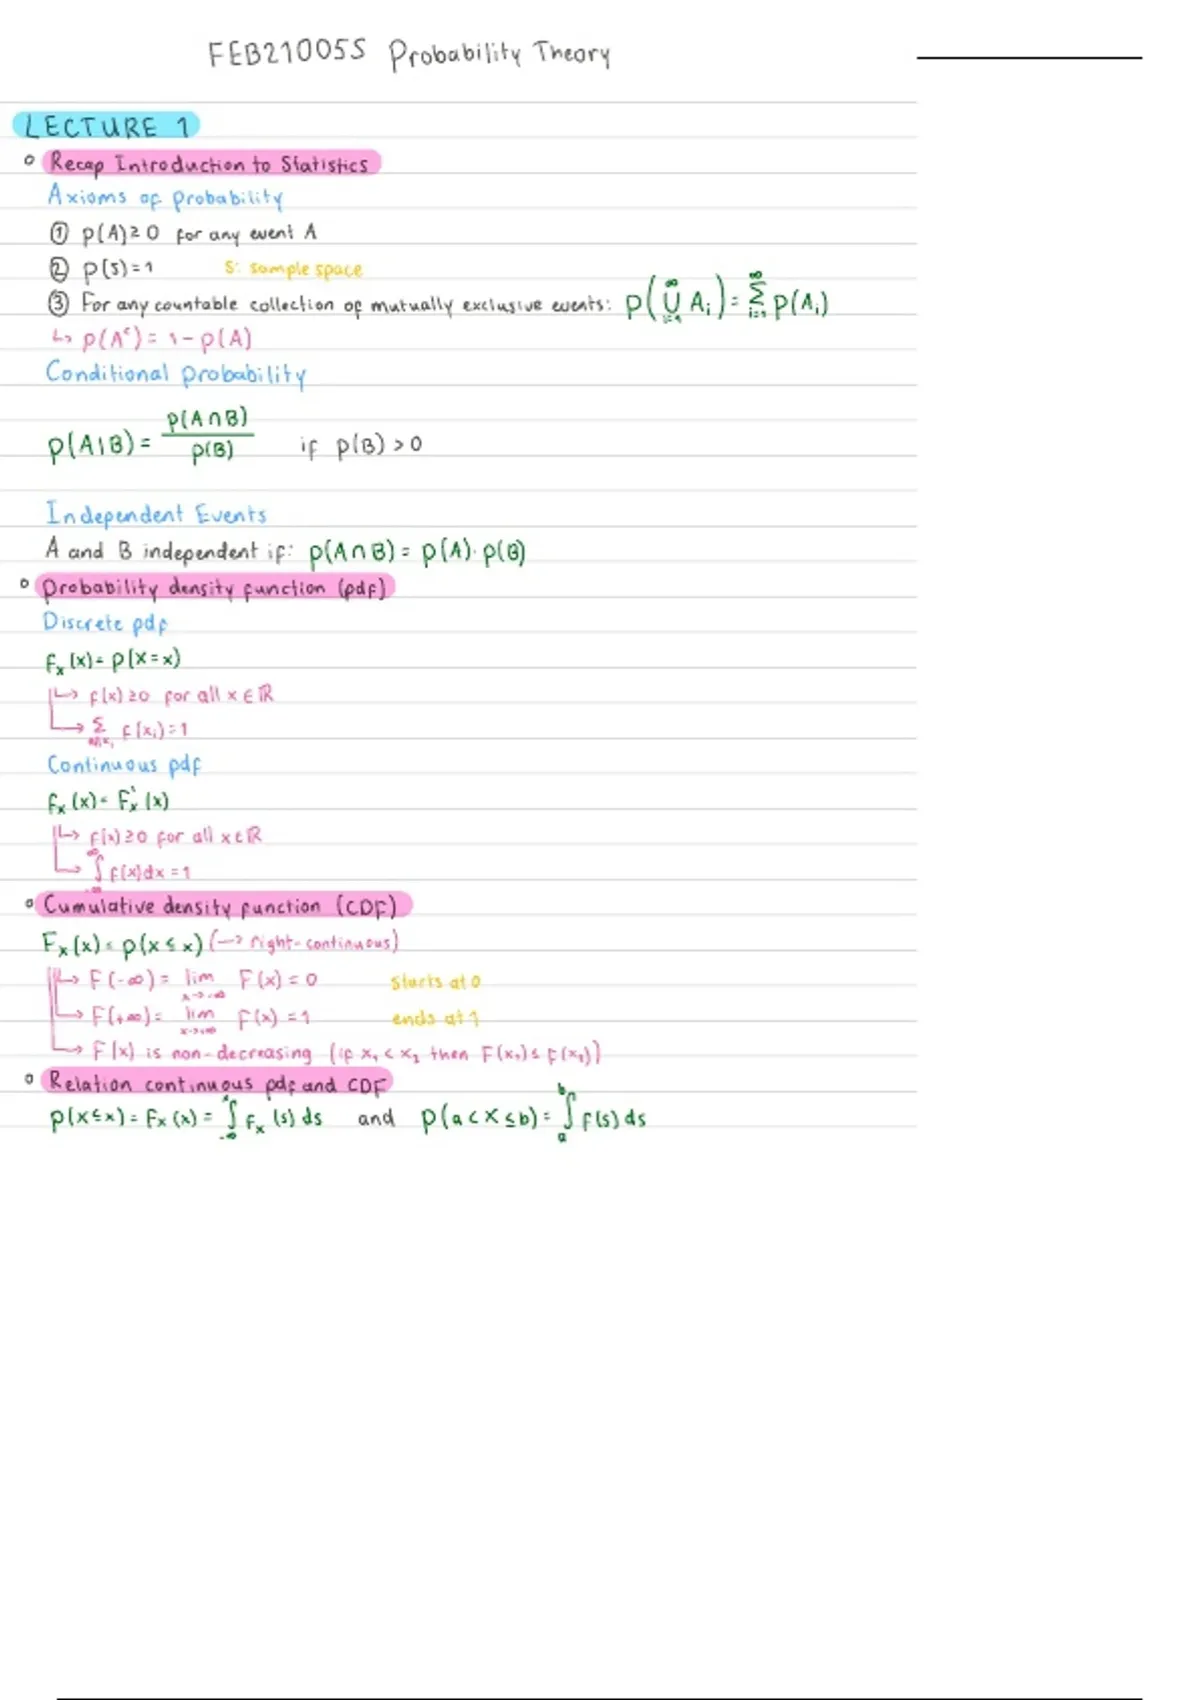 FEB21005S Probability Theory
LECTURE 1
o Recap Introduction to Statistics
Axioms of probability
① p(A)≥0 for any event A
② p(S)=1 S: sample space
③ For any countable collection of mutually exclusive events: p(⋃_{i=1}^{∞} A_i) = ∑_{i=1}^{∞} p(A_i)
↳ p(A^c) = 1 - p(A)
Conditional probability
p(A|B) = p(A∩B) / p(B) if p(B) > 0
Independent Events
A and B independent if: p(A∩B) = p(A)·p(B)
o Probability density function (pdf)
Discrete pdf
f_x(x) = p(X=x)
↳ f(x) ≥0 for all x ∈ ℝ
↳ ∑_{all x_i} f(x_i) = 1
Continuous pdf
f_x(x) = F'_x(x)
↳ f(x) ≥0 for all x ∈ ℝ
↳ ∫_{-∞}^{∞} f(x)dx = 1
o Cumulative density function (CDF)
F_x(x) = p(X ≤ x) (→ right-continuous)
↳ F(-∞) = lim_{x→-∞} F(x) = 0 starts at 0
↳ F(+∞) = lim_{x→+∞} F(x) = 1 ends at 1
↳ F(x) is non-decreasing (if x_1 < x_2 then F(x_1) ≤ F(x_2))
o Relation continuous pdf and CDF
p(X≤x) = F_x(x) = ∫_{-∞}^{x} f_x(s) ds and p(a<X≤b) = ∫_{a}^{b} f(s) ds